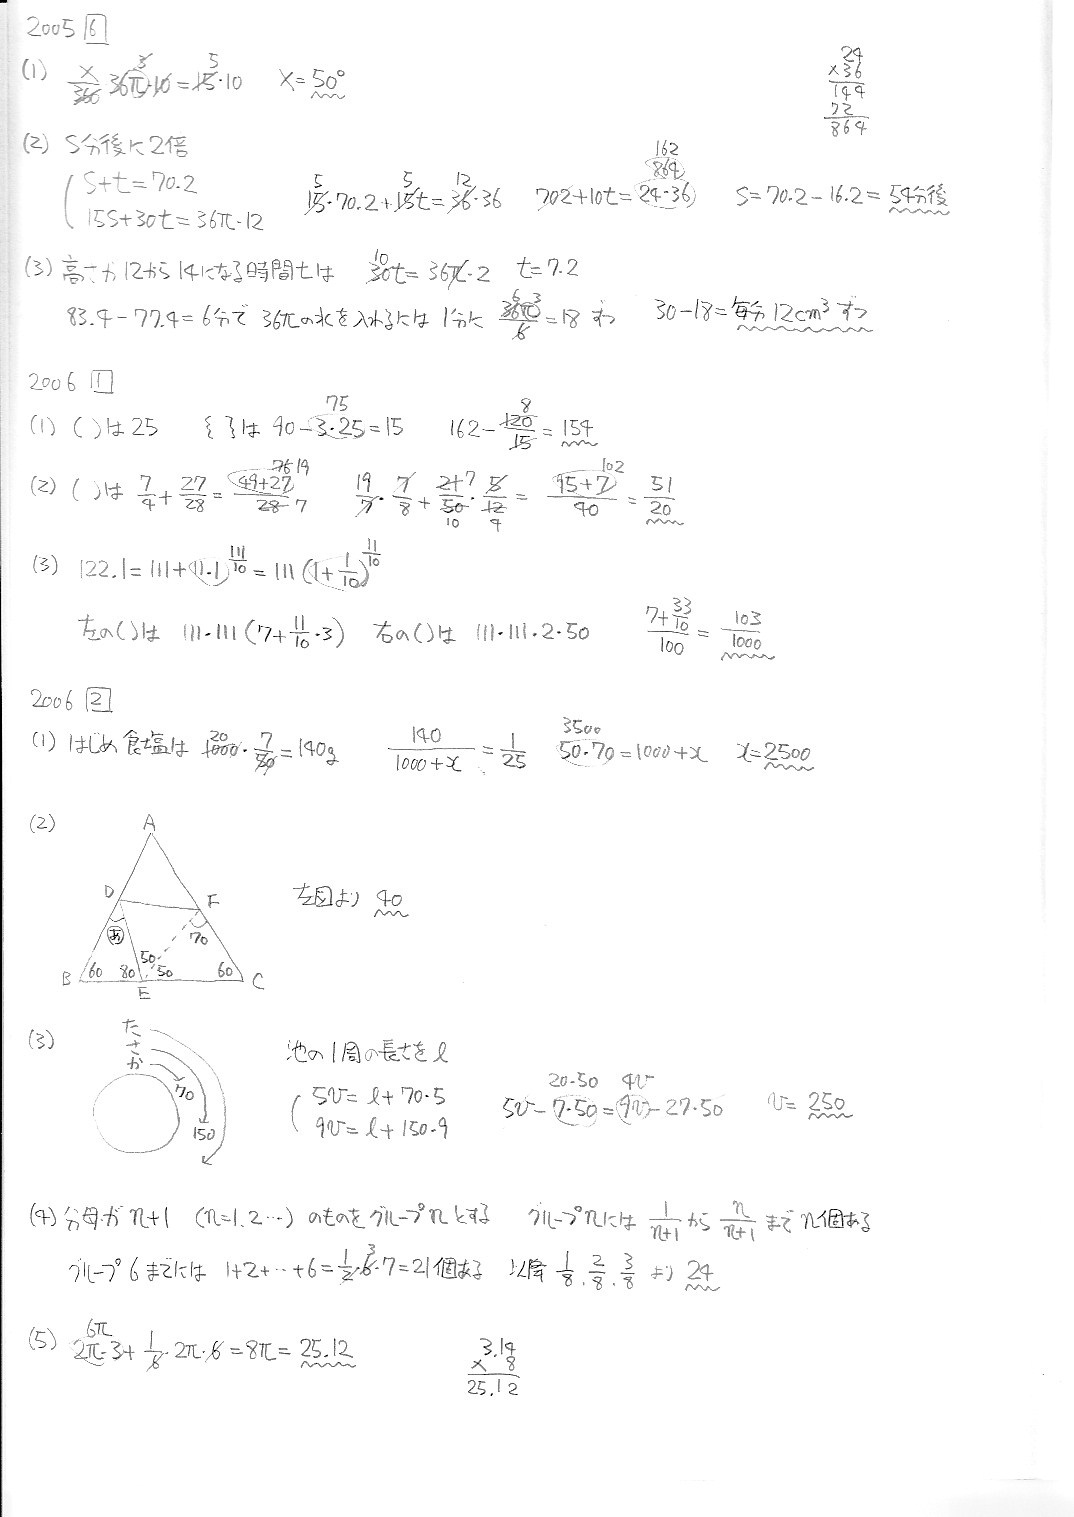 2005 6
(1) x/360 36π・10=15・10 3 5 x=50°
24
×36
144
72
864
(2) S分後に2倍
S+t=70.2
15S+30t=36π・12
15・70.2+15t=36・36 5 5 12 702+10t=24・36 864 162 S=70.2-16.2=54分後
(3) 高さが12から14になる時間tは 30t=36π・2 10 t=7.2
83.4-77.4=6分で 36πの水を入れるには 1分に 36π/6=18 ずつ 6 3 30-18=毎分12cm³ずつ
2006 1
(1) ( )は25 { }は 90-3・25=15 75 162-120/15=154 8
(2) ( )は 7/4+27/28=49+27/28 76 19 7 19/7・7/8+21/50・5/12= 7 10 4 95+7/40=51/20 102
(3) 122.1=111+11.1=111(1+1/10) 111/10 11/10
左の( )は 111・111(7+11/10・3) 右の( )は 111・111・2・50 7+33/10/100=103/1000
2006 2
(1) はじめ食塩は 1000・7/50=140g 20 140/1000+x=1/25 50・70=1000+x 3500 x=2500
(2)
A
D F
あ 70
50
B 60 80 50 60 C
E
左図より 40
(3)
た
さ
か
70
150
池の1周の長さをℓ
5v=ℓ+70・5
9v=ℓ+150・9
5v-7・50=9v-27・50 20・50 4v v=250
(4) 分母がn+1 (n=1,2…) のものをグループnとする グループnには 1/n+1 から n/n+1 まで n個ある
グループ6までには 1+2+…+6=1/2・6・7=21個ある 3 以降 1/8, 2/8, 3/8 より 24
(5) 2π・3+1/6・2π・6=8π=25.12 6π
3.14
× 8
25.12